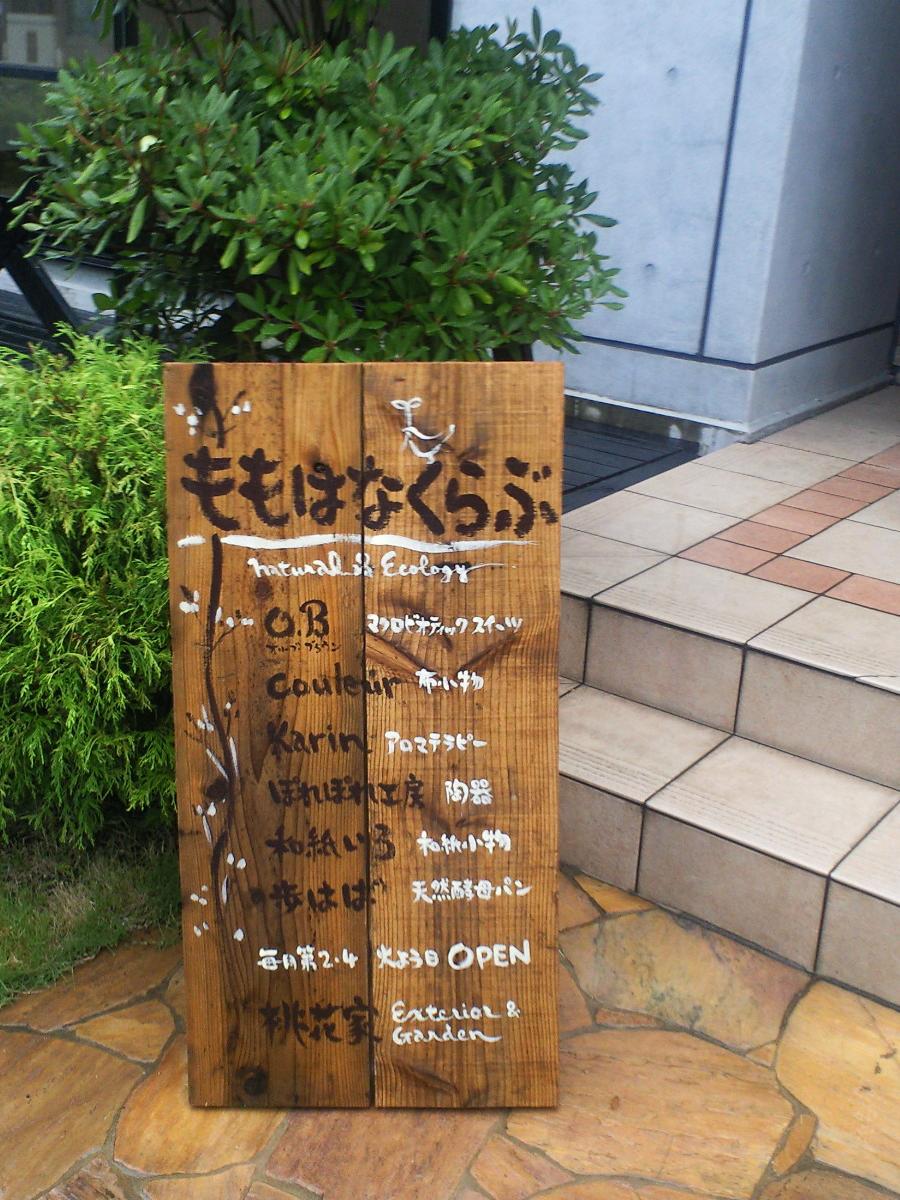 ももはなくらぶ
natural & Ecology
O.B マクロビオティックスイーツ
オリーブ ブラウン
couleur 布小物
Karin アロマテラピー
ぽれぽれ工房 陶器
和紙いろ 和紙小物
歩はば 天然酵母パン
毎月第2・4 火よう日 OPEN
桃花家 Exterior &
Garden